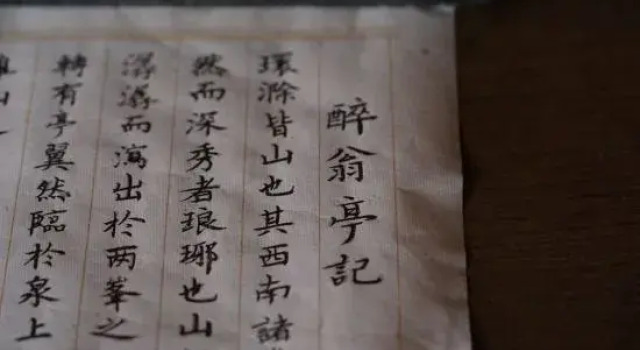 醉翁亭記
環滁皆山也其西南諸
然而深秀者琅琊也山
潺潺而瀉出於两峯之
轉有亭翼然臨於泉上